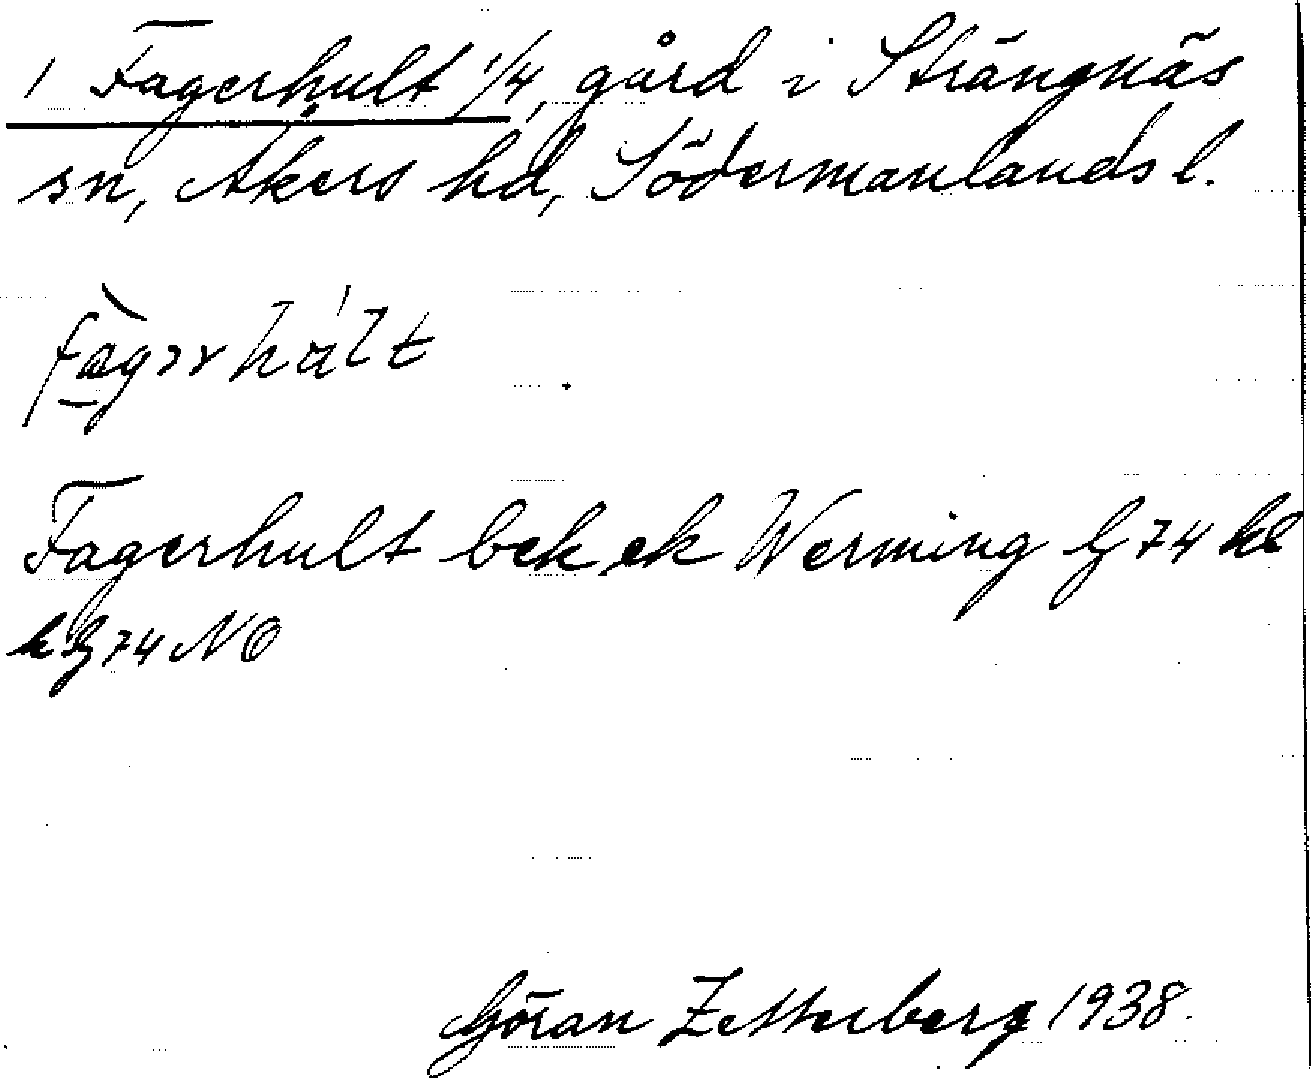 1 Fagerhult 1/4, gård i Strängnäs
sn, Åkers hd, Södermanlands l.
Fagerhult bek ek Werming G 74 kl
k G 74 NO
Göran Zetterberg 1938.